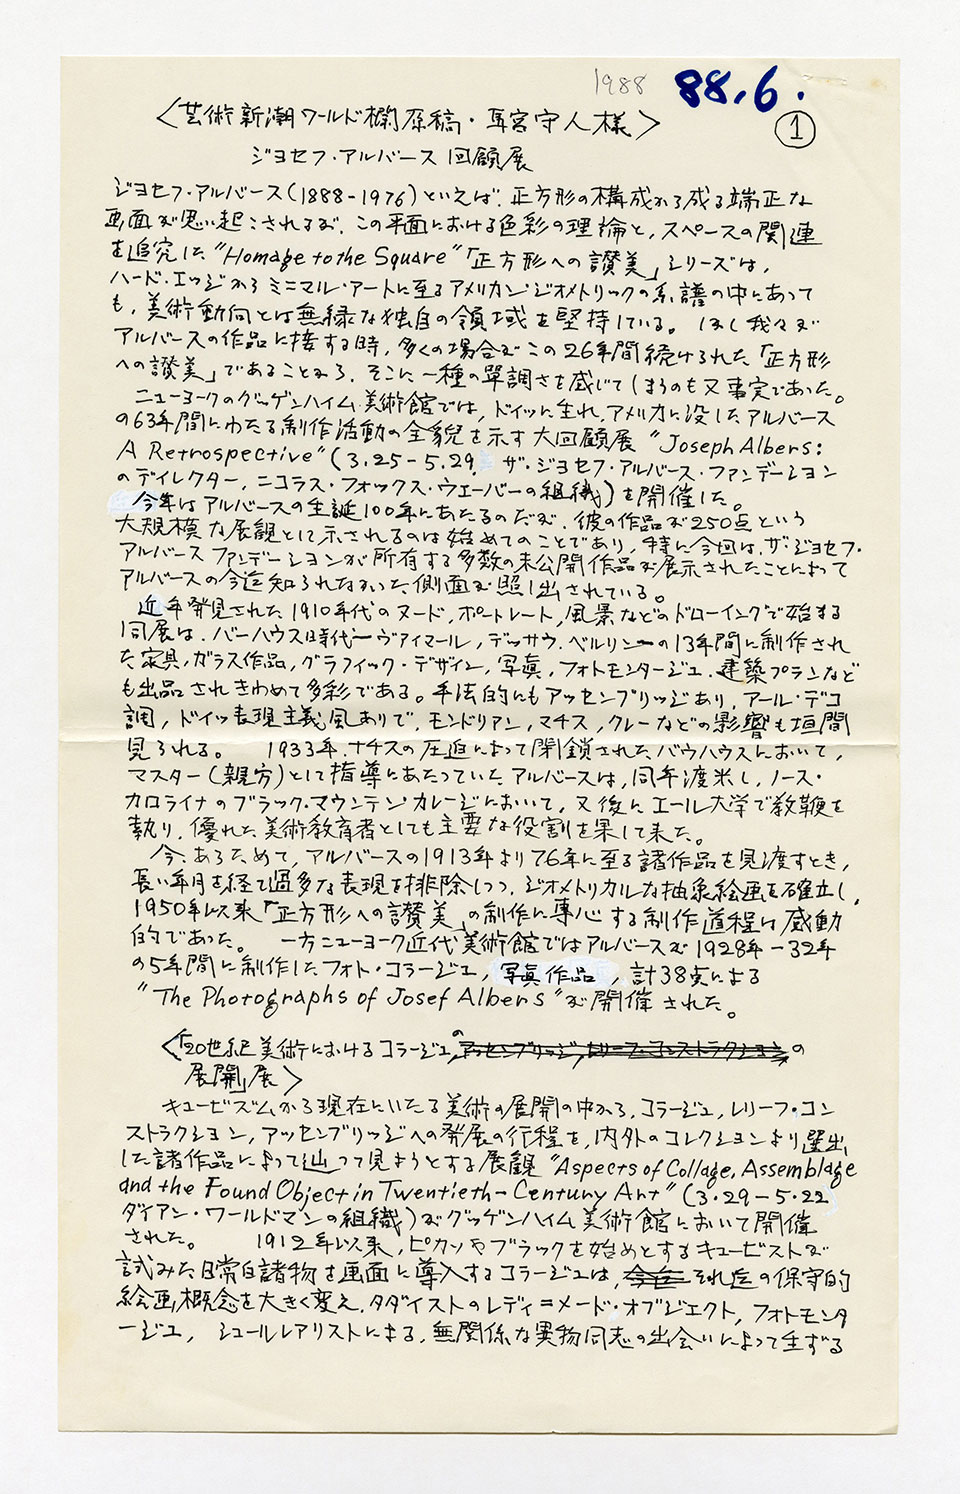 1988 88.6.
①
〈芸術新潮ワールド欄原稿・耳宮守人様〉
ジョセフ・アルバース回顧展
ジョセフ・アルバース(1888-1976)といえば、正方形の構成から成る端正な
画面が思い起こされるが、この平面における色彩の理論と、スペースの関連
を追究した"Homage to the Square"「正方形への讃美」シリーズは、
ハード・エッジからミニマル・アートに至るアメリカン・ジオメトリックの系譜の中にあって
も、美術動向とは無縁な独自の領域を堅持している。しかし我々が
アルバースの作品に接する時、多くの場合がこの26年間続けられた「正方形
への讃美」であることから、そこに一種の単調さを感じてしまうのも又事実であった。
ニューヨークのグッゲンハイム美術館では、ドイツに生れ、アメリカに没したアルバース
の63年間にわたる制作活動の全貌を示す大回顧展 "Joseph Albers:
A Retrospective"(3.25-5.29. ザ・ジョセフ・アルバース・ファンデーション
のディレクター、ニコラス・フォックス・ウェーバーの組織)を開催した。
今年はアルバースの生誕100年にあたるのだが、彼の作品が250点という
大規模な展観として示されるのは始めてのことであり、特に今回は、ザ・ジョセフ・
アルバースファンデーションが所有する多数の未公開作品が展示されたことによって
アルバースの今迄知られなかった側面が照し出されている。
近年発見された1910年代のヌード、ポートレート、風景などのドローイングで始まる
同展は、バーハウス時代ーヴァイマール、デッサウ、ベルリンーの13年間に制作され
た家具、ガラス作品、グラフィック・デザイン、写真、フォトモンタージュ、建築プランなど
も出品されきわめて多彩である。手法的にもアッセンブリッジあり、アール・デコ
調、ドイツ表現主義風ありで、モンドリアン、マチス、クレーなどの影響も垣間
見られる。 1933年、ナチスの圧迫によって閉鎖されたバウハウスにおいて、
マスター(親方)として指導にあたっていたアルバースは、同年渡米し、ノース・
カロライナのブラック・マウンテンカレージにおいて、又後にエール大学で教鞭を
執り、優れた美術教育者としても主要な役割を果して来た。
今、あらためて、アルバースの1913年より76年に至る諸作品を見渡すとき、
長い年月を経て過多な表現を排除しつつ、ジオメトリカルな抽象絵画を確立し、
1950年以来「正方形への讃美」の制作に専心する制作道程は感動
的であった。 一方ニューヨーク近代美術館ではアルバースが1928年-32年
の5年間に制作したフォト・コラージュ、写真作品、計38点による
"The Photographs of Josef Albers"が開催された。
〈「20世紀美術におけるコラージュの アッセンブリッジ，レリーフ・コンストラクション の
展開」展〉
キュービズムから現在にいたる美術の展開の中から、コラージュ、レリーフ・コン
ストラクション、アッセンブリッジへの発展の行程を、内外のコレクションより選出
した諸作品によって辿って見ようとする展観 "Aspects of Collage, Assemblage
and the Found Object in Twentieth-Century Art"(3.29-5.22
ダイアン・ワールドマンの組織)がグッゲンハイム美術館において開催
された。 1912年以来、ピカソやブラックを始めとするキュービストが
試みた日常的諸物を画面に導入するコラージュは、それ迄の保守的
絵画概念を大きく変え、タダイストのレディ=メード・オブジェクト、フォトモンタ
ージュ、シュールレアリストによる、無関係な異物同志の出会いによって生ずる